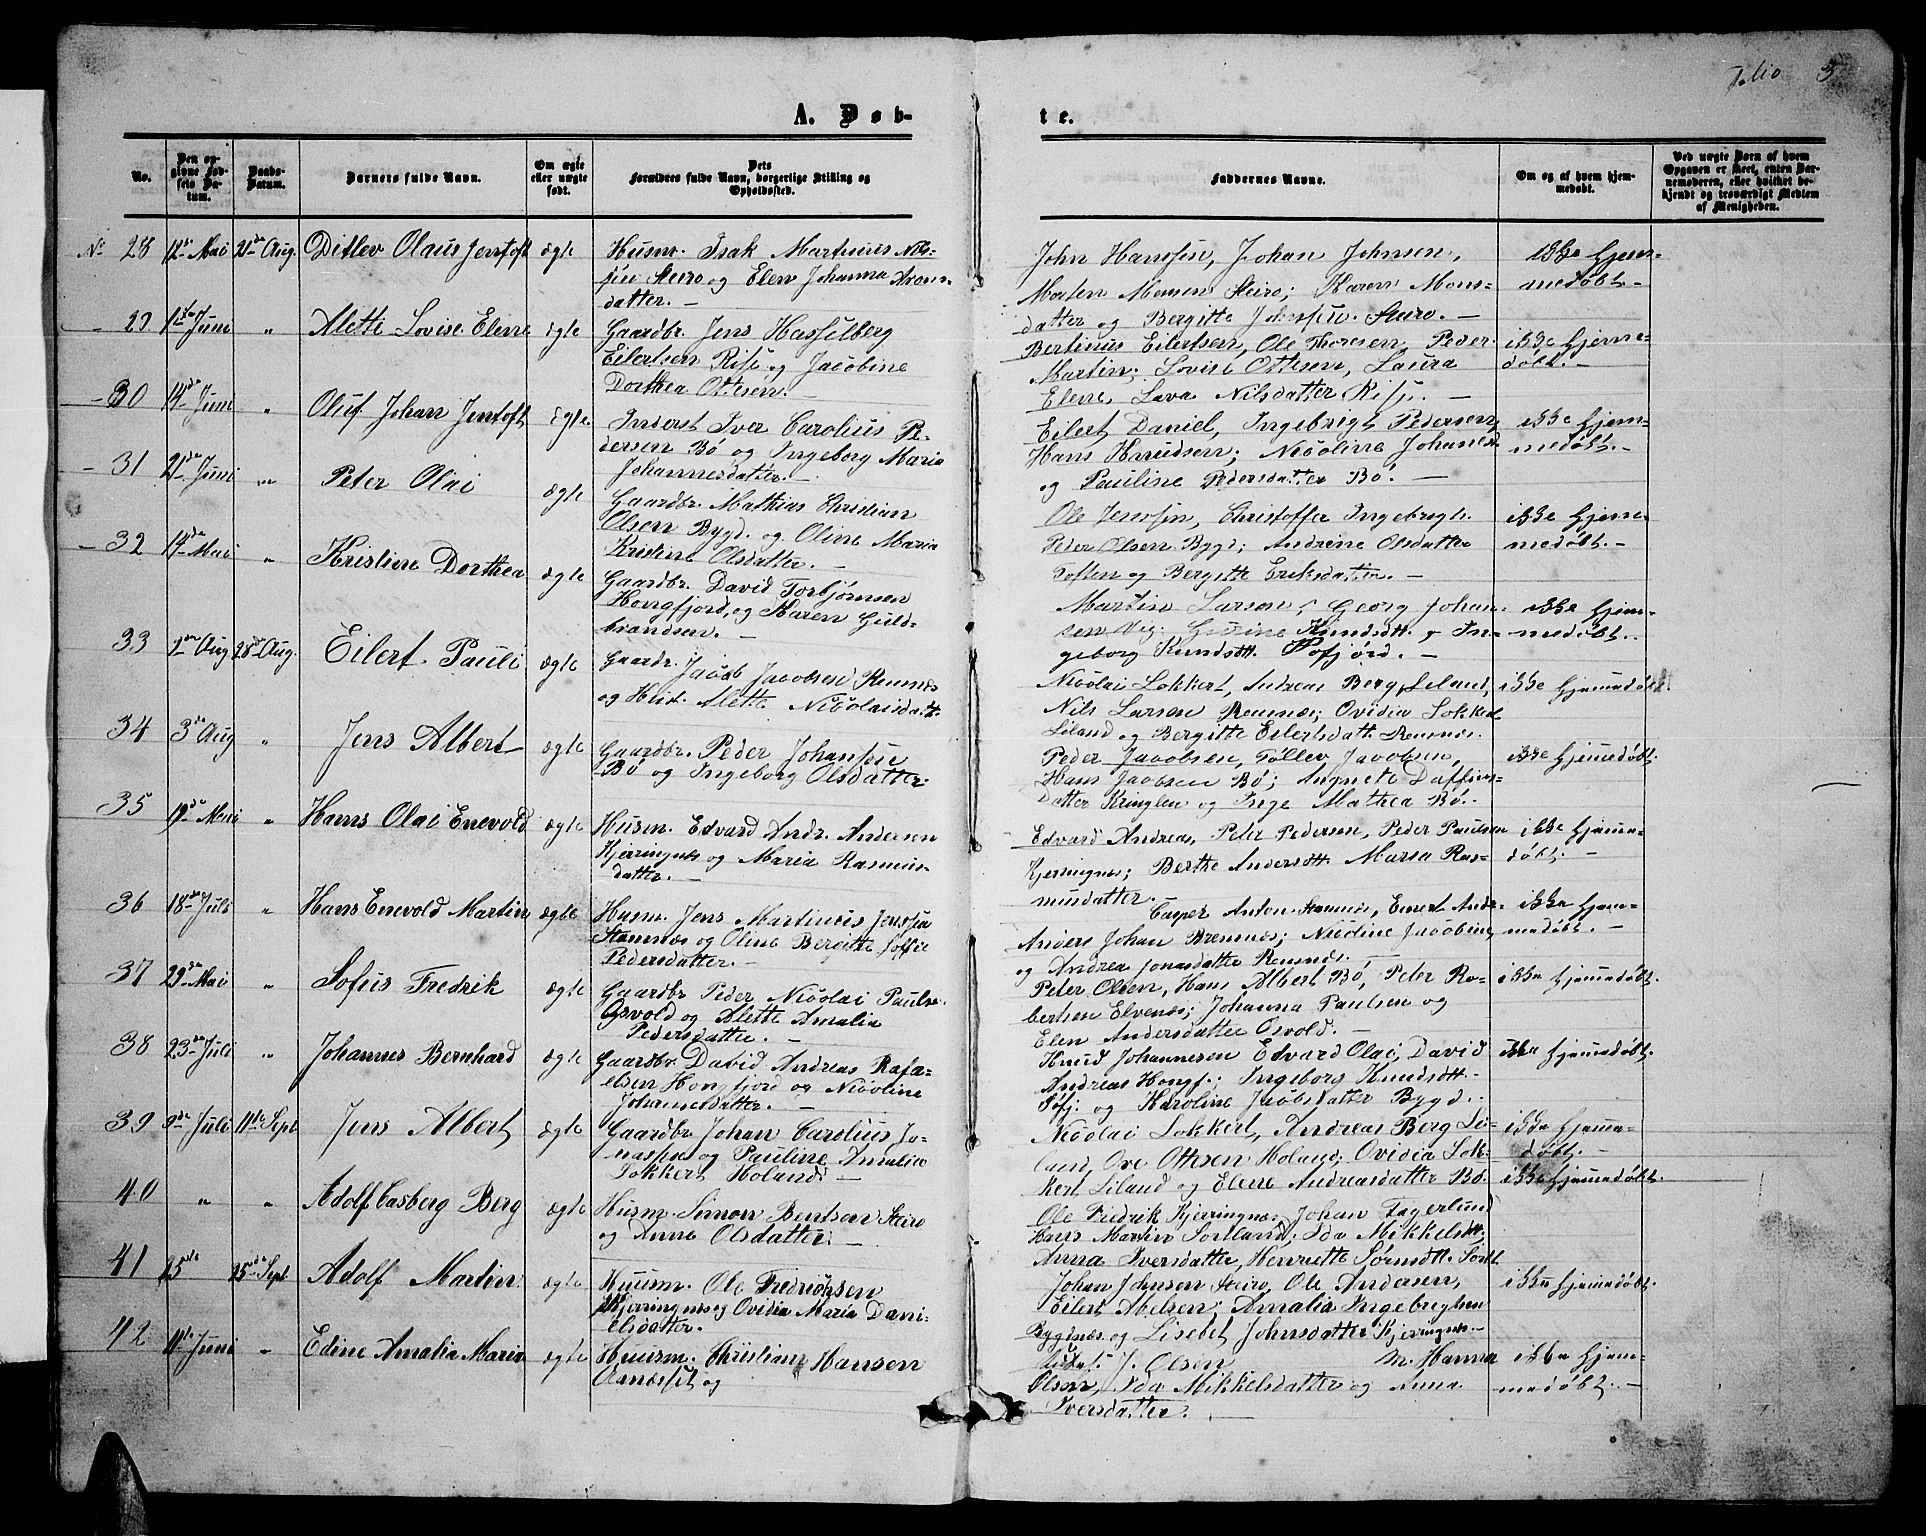 Folio 3
A. Døb-
te.
No.
Den op-
givne Fød-
sels Da-
tum.
Daabs-
Datum.
Barnets fulde Navn.
Om ægte
eller uægte
født.
Dets
Forældres fulde Navn, borgerlige Stilling og
Opholdssted.
Faddernes Navne.
Om og af hvem hjem-
medøbt.
Ved uægte Børn af hvem
Opgaven er skeet, enten Bar-
nemoderen, eller hvilket be-
kjendt og troværdigt Medlem
af Menigheden.
No 28 12te Mai 21de Aug. Ditlev Olaus Jentoft ægte
Husm. Isak Martinus Nil-
sen Steiro og Elen Johanna Arons-
datter. —
John Hanssen, Johan Johnsen,
Morten Monsen Steiro; Karen Mons-
datter og Bergitte Johnsen. Steiro. —
ikke hjem-
medøbt. —
- 29 12te Juni " Alette Lovise Elene ægte
Gaardbr. Jens Hasselberg
Eilertsen Risø og Jacobine
Dorthea Ottesen. —
Bertinus Eilertsen, Ole Thoresen, Peder
Martin; Lovise Ottesen, Laura
Elene, Lava Nilsdatter Risø. —
ikke hjemme-
døbt. —
- 30 14de Juni " Oluf Johan Jentoft ægte
Inderst Iver Carolius Pe-
dersen Bø og Ingeborg Maria
Johannesdatter. —
Eilert Daniel, Ingebrigt Pedersen,
Hans Knudsen; Nicoline Johanes
og Pauline Pedersdatter Bø. —
ikke hjem-
medøbt. —
- 31 21de Juni " Peter Olai ægte
Gaardbr. Mathias Christian
Olsen Bygd. og Oline Maria
Kristine Olsdatter. —
Ole Jenssen, Christoffer Ingebrigts.
Peder Olsen Bygd; Andrine Olsdatter
Toften og Bergitte Eriksdatter. —
ikke hjem-
medøbt. —
- 32 14de Mai " Kristine Dorthea ægte
Gaardbr. David Torbjørnsen
Hongfjord, og Karen Guld-
brandsen. —
Martin Larsen, Georg Johan-
sen Vig; Gurine Knudsdtt. og In-
geborg Knudsdtt. Pofjord. —
ikke hjem-
medøbt. —
33 2den Aug 28de Aug. Eilert Pauli ægte
Gaardbr. Jacob Jacobsen Remnes
og Hust. Alette Nicolaisdatt.
Nicolai Lokkert, Andreas Berg Liland,
Nils Larsen Remnes; Ovidia Lokkert
Liland og Bergitte Eilertsdatt. Remnes.
ikke hjemmedøbt
34 3de Aug " Jens Albert ægte
Gaardbr. Peder Johansen
Bø og Ingeborg Olsdatter.
Peder Jacobsen, Tollev Jacobsen,
Hans Jacobsen Bø; Angnete Daffins-
datter Kringlen og Inge Mathea Bø.
ikke hjemmedøbt.
35 19de Mai " Hans Olai Enevold ægte
Husm. Edvard Andr. Andersen
Kjerringnes og Maria Rasmus-
datter. —
Edvard Andreas, Peter Pedersen, Peder Paulsen
Kjerringnes; Berthe Andersdtt. Maria Ras-
musdatter. —
ikke hjemme-
døbt. —
36 18de Juli " Hans Enevold Martin ægte
Husm. Jens Martinus Jenssen
Stamnæs og Oline Bergitte Soffie
Pedersdatter. —
Casper Anton Remnes, Einert Andr-
Anders Johan Bremnes; Nicoline Jacobine
og Andrea Jonasdatter Remnes. —
ikke hjem-
medøbt. —
37 29de Mai " Sofus Fredrik ægte
Gaardbr Peder Nicolai Pauls.
Osvold og Alette Amalia
Pedersdatter. —
Peter Olsen, Hans Albert Bø, Peter Ro-
bertsen Elvenes; Johanna Paulsen og
Elen Andersdatter Osvold. —
ikke hjemmedøbt.
38 23de Juli " Johannes Bernhard ægte
Gaardbr. David Andreas Rafa-
elsen Hongfjord og Nicoline
Johannesdatter. —
Knud Johannesen Edvard Olai, David
Andreas Hongf.; Ingeborg Knudsdtt.
og Karoline Jacobsdatter Bygd.
ikke hjemmedøbt.
39 9de Juli 11te Sept Jens Albert ægte
Gaardbr. Johan Carolius Jo-
nassen og Pauline Amalia
Lokkert Holand. —
Nicolai Lokkert, Andreas Berg Li-
land, Ove Ottesen Holand; Ovidia Lok-
kert Liland og Elene Andreasdatter Bø.
ikke hjemme-
døbt. —
40 " " Adolf Casberg Berg ægte
Husm. Simon Bentsen Steiro
og Anne Olsdatter. —
Ole Fredrik Kjerringnes, Johan Fagerlund
Hans Martin Sortland; Ida Mikkelsdtt,
Anna Iversdatter, Henriette Sørensdtt. Sortl.
ikke hjemmedøbt.
41 25de 25de Sept. Adolf Martin ægte
Huusm. Ole Fredriksen
Kjerringnes og Ovidia Maria Dani-
elsdatter.
Johan Johnsen Steiro, Ole Andersen,
Eilert Abelsen; Amalia Ingebrigtsen
Bygdnæs og Lisebet Johnsdatter Kjerringnes. —
ikke hjemmedøbt.
42 11te Juni " Edine Amalia Maria ægte
Huusm. Christian Hansen
og
J. Olsen M. Hanna
Olsen, Ida Mikkelsdatter og Anna
Iversdatter. —
ikke hjem-
medøbt. —